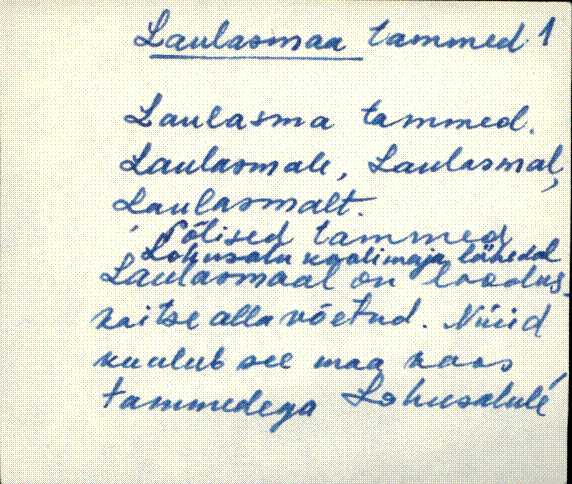 Laulasmaa tammed 1
Laulasma tammed.
Laulasmale, Laulasmal,
Laulasmalt.
Põlised tammed
Lohusalu koolimaja lähedal
Laulasmaal on loodus-
kaitse alla võetud. Nüüd
kuulub see maa koos
tammedega Lohusalule